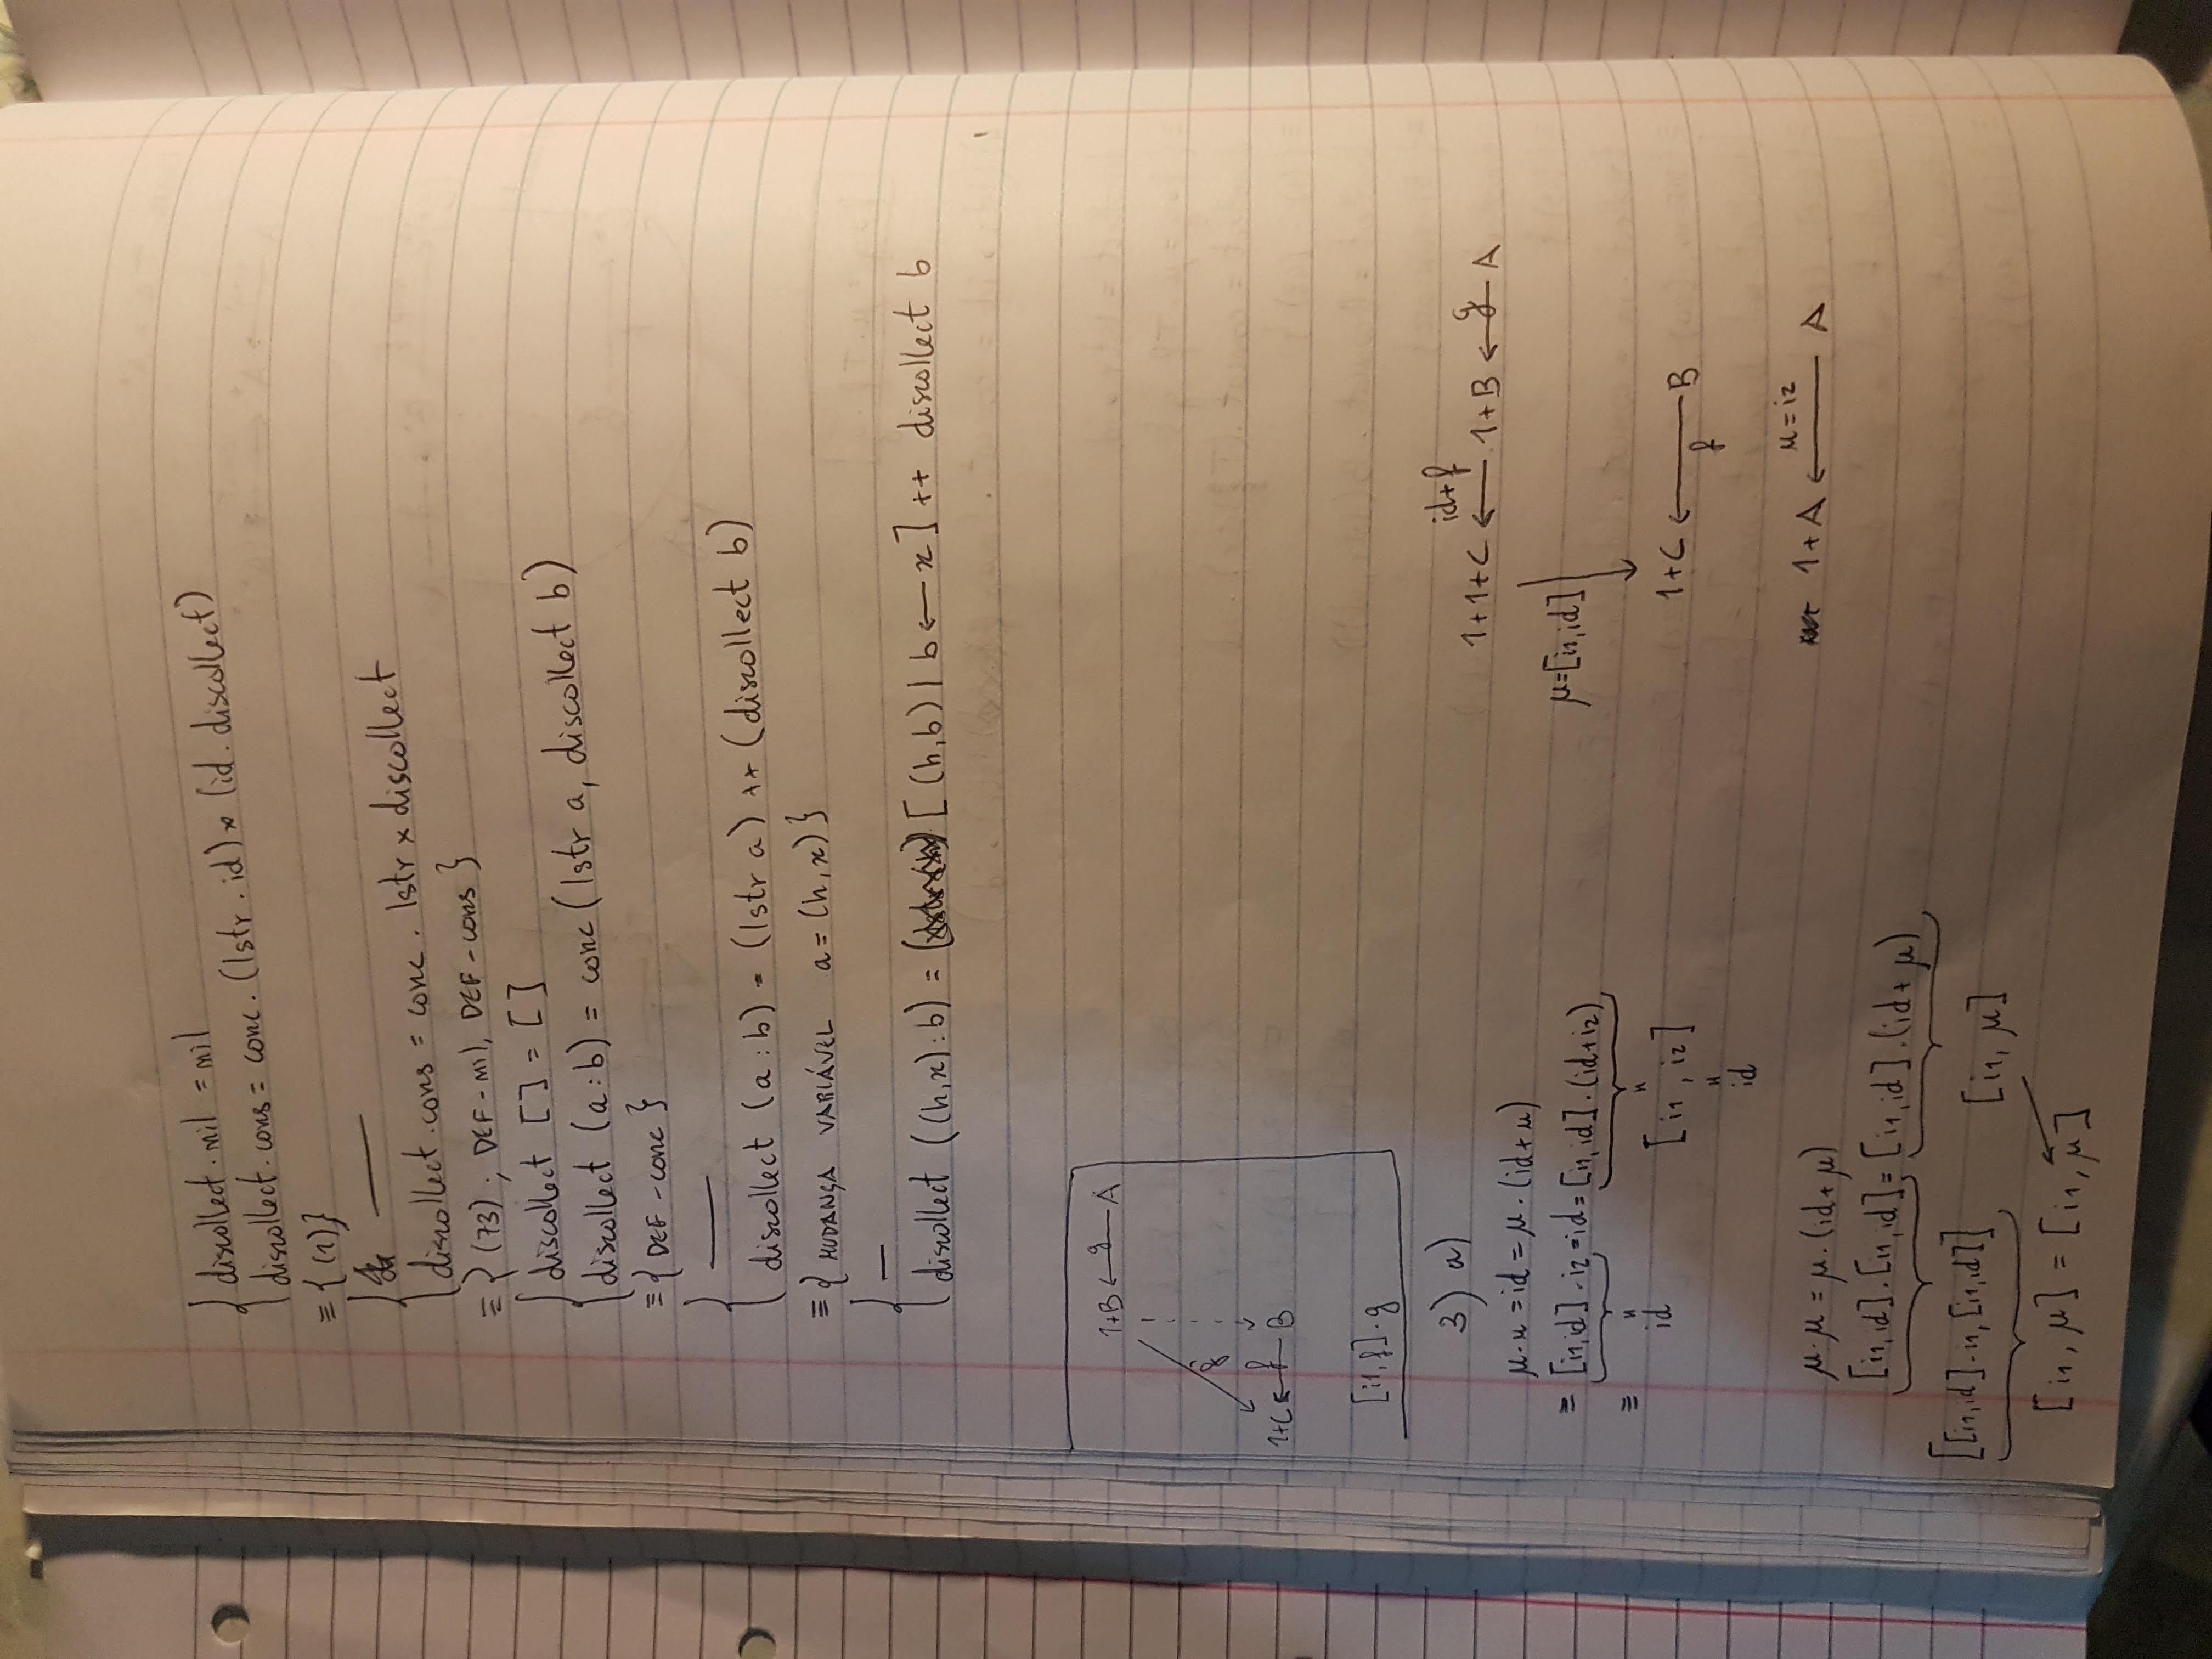 discollect . nil = nil
discollect . cons = conc . (lstr . id) × (id . discollect)
≡ { (1) }
discollect . cons = conc . lstr × discollect
≡ { (73) ; DEF - nil, DEF - cons }
discollect [] = []
discollect (a : b) = conc (lstr a, discollect b)
≡ { DEF - conc }
discollect (a : b) = (lstr a) ++ (discollect b)
≡ { MUDANÇA VARIÁVEL a = (h, x) }
discollect ((h, x) : b) = [ (h, b) | b ← x ] ++ discollect b
1+B ← g — A
f
1+C ← f — B
[i1, f] . g
3) a)
μ . u = id = μ . (id + u)
≡ [i1, id] . i2 = id = [i1, id] . (id + i2)
≡ id
[i1, i2]
id
μ . μ = μ . (id + μ)
[i1, id] . [i1, id] = [i1, id] . (id + μ)
[[i1, id] . i1, [i1, id]]
[i1, μ]
[i1, μ] = [i1, μ]
id + f
1+1+C ← 1+B ← g — A
μ = [i1, id]
1+C ← B
f
u = i2
1+A ← A